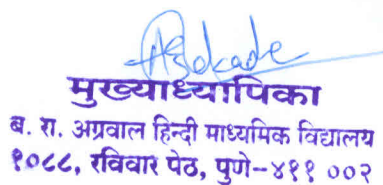 मुख्याध्यापिका
ब. रा. अग्रवाल हिन्दी माध्यमिक विद्यालय
१०८८, रविवार पेठ, पुणे-४११ ००२